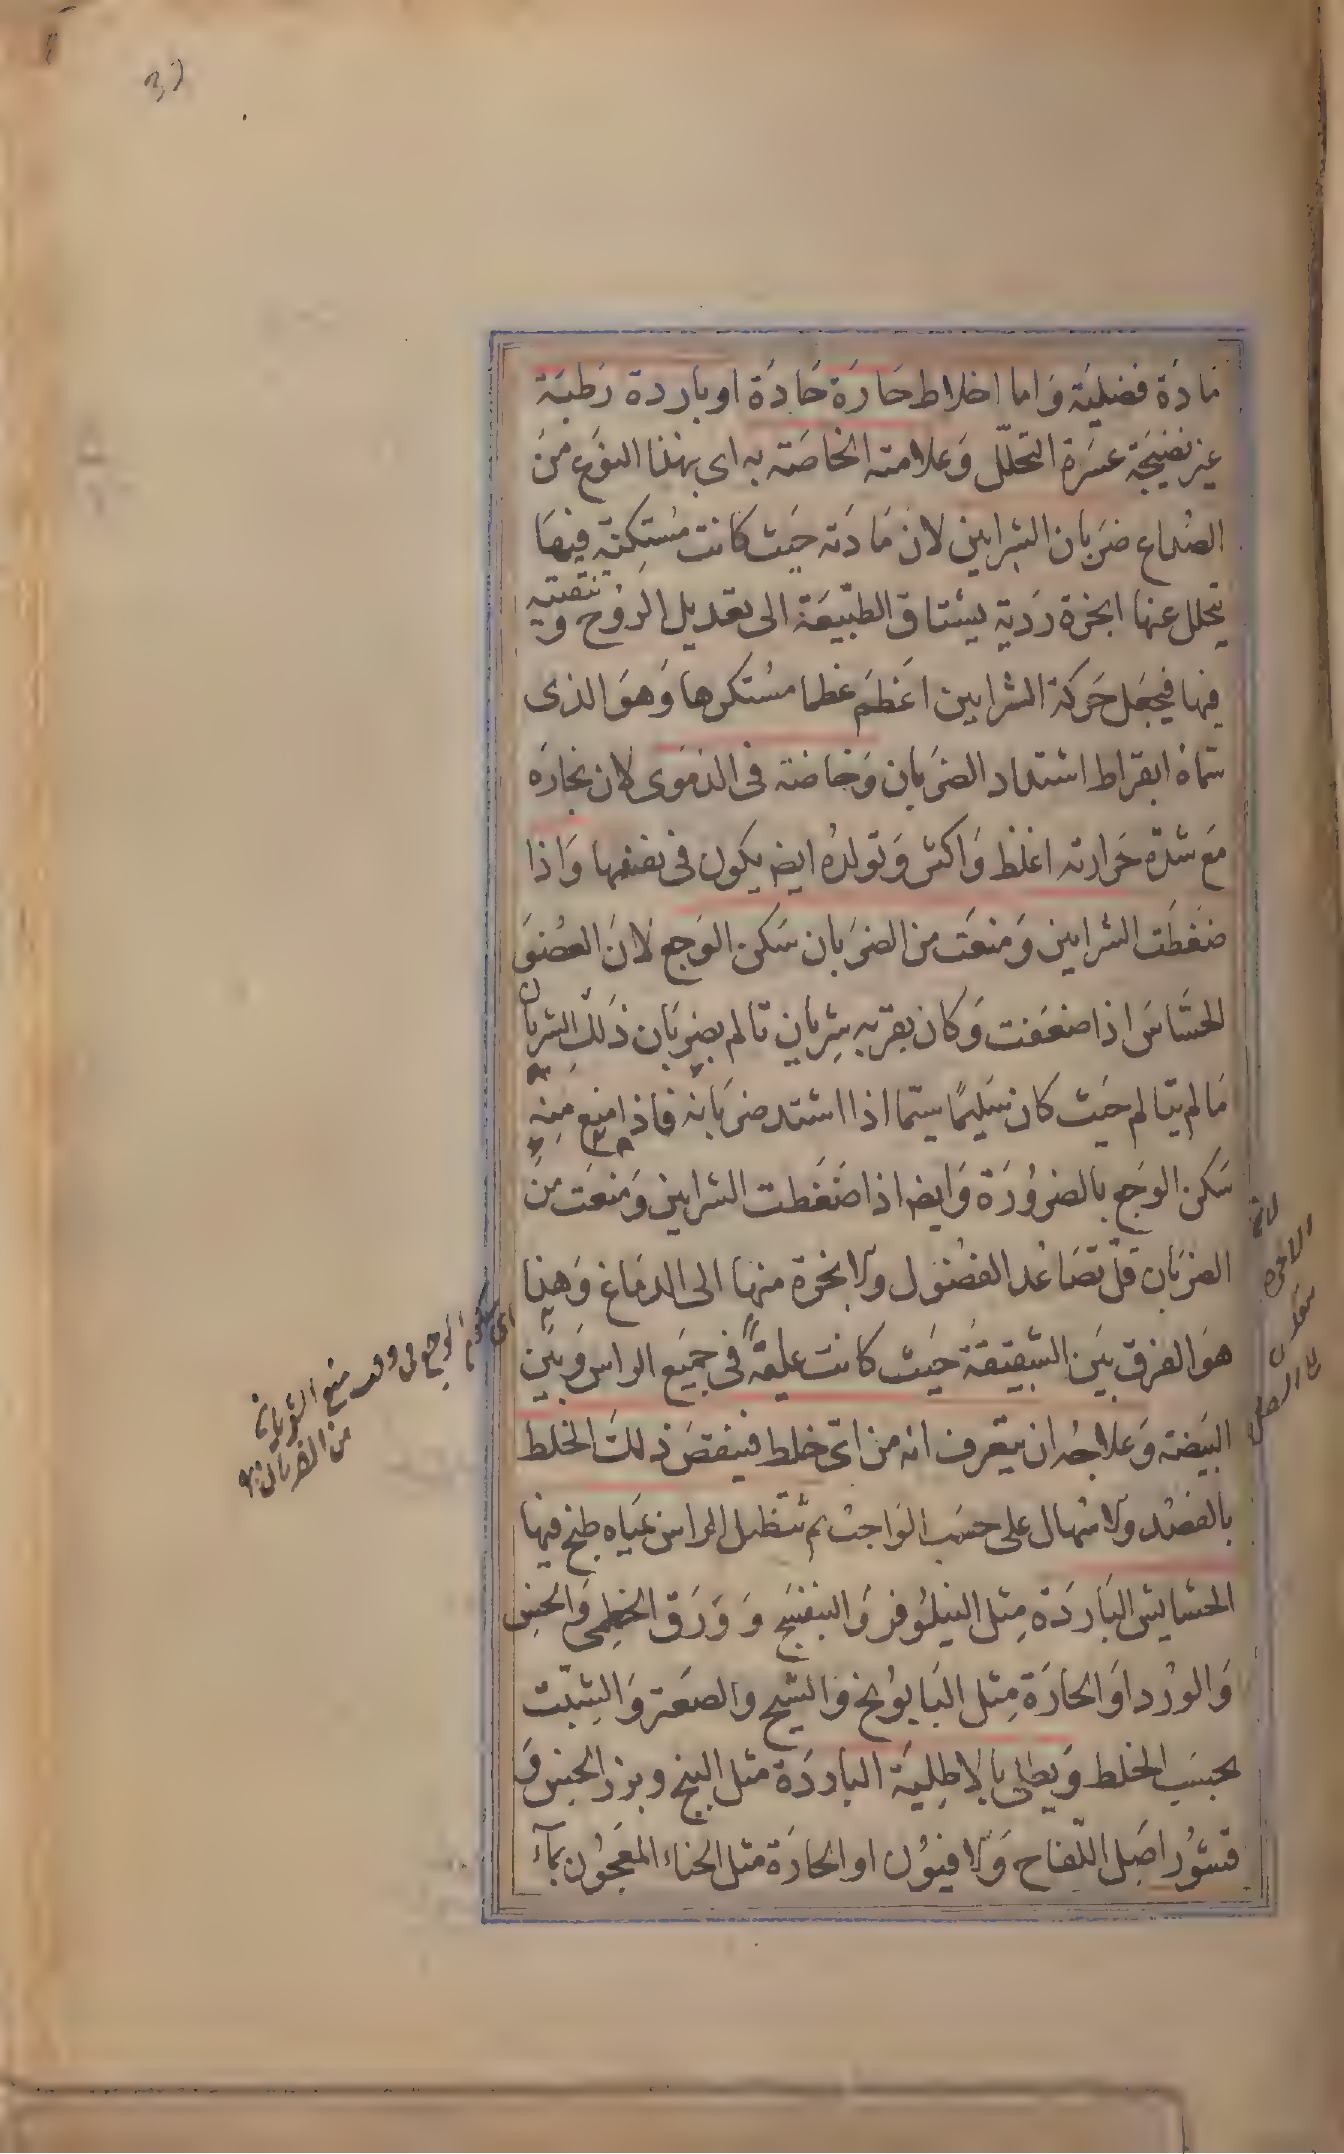 32
مادة فضلية واما اخلاط حارة حادة او باردة رطبة
غير نضيجة عسرة التحلل وعلامته الخاصة به اى بهذا النوع من
الصداع ضربان الشرايين لان مادته حيث كانت مستكنة فيها
يتحلل عنها ابخرة ردية يشتاق الطبيعة الى تعديل الروح وتنقيته
فيها فيجعل حركة الشرايين اعظم عظما مستكرها وهو الذى
سماه ابقراط اشتداد الضربان وخاصة فى الدموى لان بخاره
مع شدة حرارته اغلظ واكثر وتولده ايضا يكون فى نفسها واذا
ضغطت الشرايين ومنعت من الضربان سكن الوجع لان العضو
الحساس اذا ضعفت وكان بقربه شريان تالم بضربان ذلك الشريان
مالم يتالم حيث كان سليما سيما اذا اشتد ضربانه فاذا منع منه
سكن الوجع بالضرورة وايضا اذا ضغطت الشرايين ومنعت من
الضربان قل تصاعد الفضول والابخرة منها الى الدماغ وهذا
هو الفرق بين الشقيقة حيث كانت علية فى جميع الراس وبين
البيضة وعلاجه ان يتعرف انه من اى خلط فينقص ذلك الخلط
بالفصد والاسهال على حسب الواجب ثم تنظيل الراس بمياه طبخ فيها
الحشايش الباردة مثل النيلوفر والبنفسج وورق الخطمى والخس
والورد او الحارة مثل البابونج والشيح والصعتر والشبت
بحسب الخلط ويطلى بالاطلية الباردة مثل البنج وبزر الخس و
قشور اصل اللفاح والافيون او الحارة مثل الحناء المعجون بماء
الوجع فى وقت منع الشريان
من الضربان